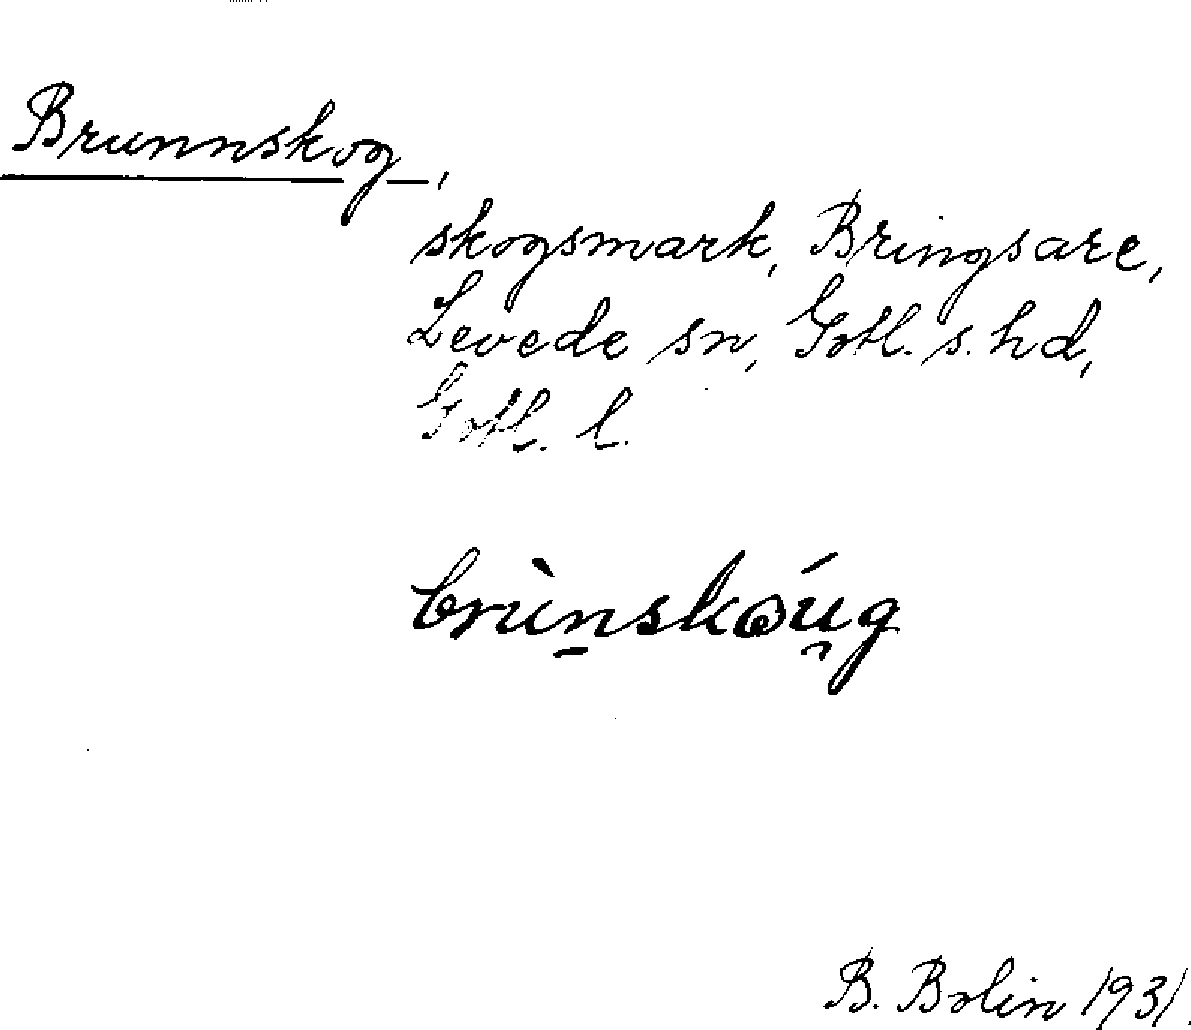 Brunnskog,
skogsmark, Bringsare,
Levede sn, Gotl. s. hd,
Gotl. l.
brùn̠skǿu̯g
B. Bolin 1931.